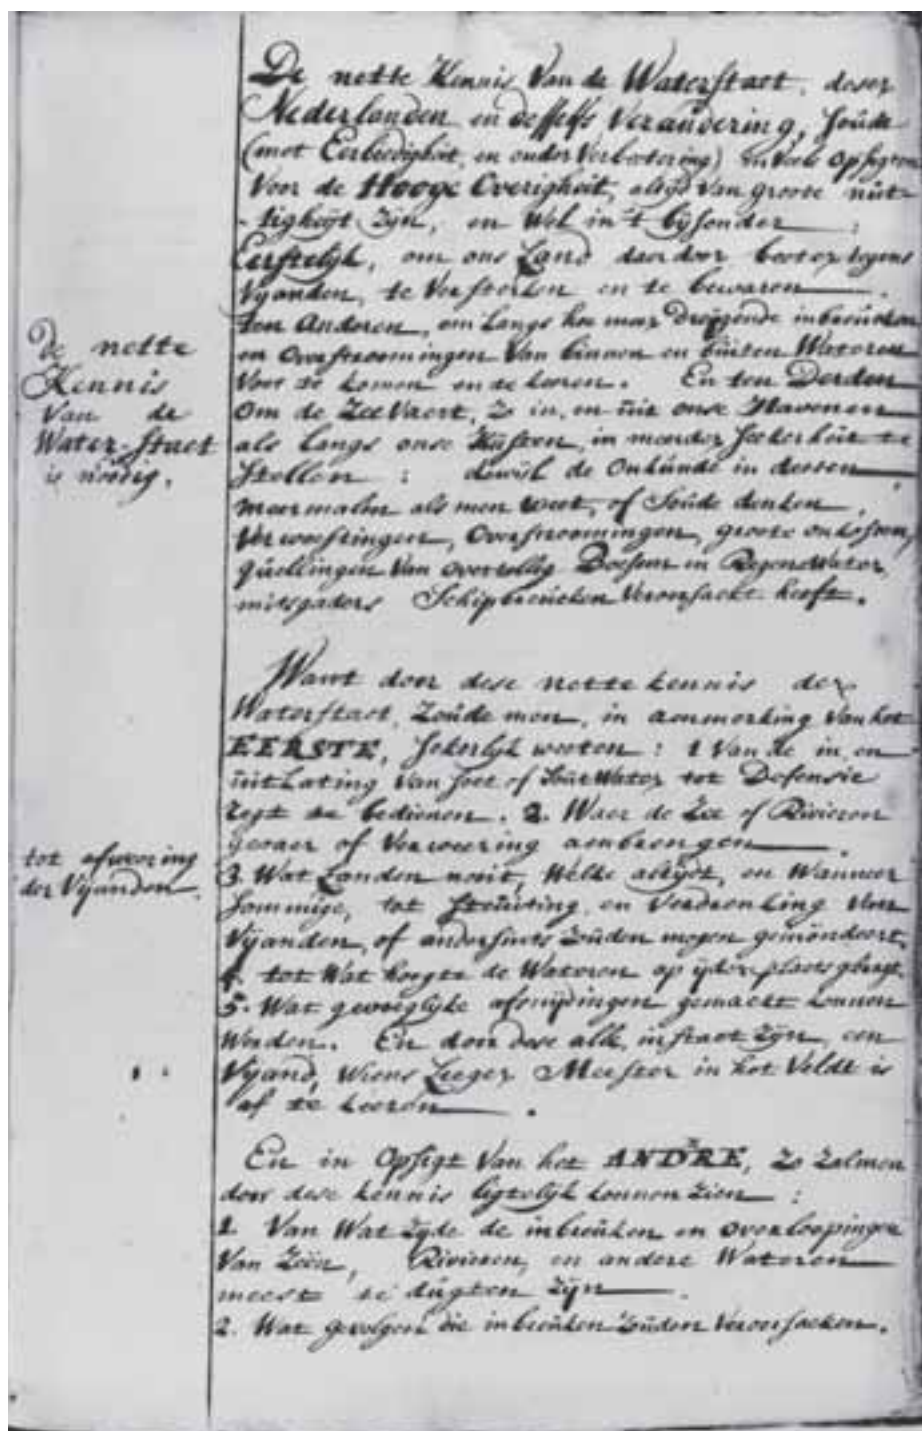 De nette Kennis Van de Waterstaet, deser
Nederlanden en desselfs Verandering, soude
(met Eerbiedigheit, en onder Verbetering) in veele opsigten
Voor de Hooge Overigheit, altyd van groote nut-
-tigheyt Zyn, en Wel in 't bysonder :
Eerstelyk, om ons Land daer door beeter tegens
Vyanden, te Versterken en te bewaren .
ten Anderen, om langs hoe meer Dreygende inbreuken
en Overstroomingen Van binnen en buiten Wateren
Voor te komen en te keeren. En ten Derden
Om de Zee Vaert, Zo in, en uit onse Havenen
als langs onse Kusten, in meerder seekerheit te
stellen : dewyl de Onkunde in dessen
meermalen als men weet, of soude denken,
Verwoestingen, Overstroomingen, groote onkosten,
quellingen Van overtollig Boesem en Regenwater,
mitsgaders Schipbreuken Veroorsaekt heeft.
De nette
Kennis
Van de
Water-staet
is noodig.
Want door dese nette kennis der
Waterstaet, Zoude men, in aenmerking Van het
EERSTE, sekerlyk weeten : 1 Van de in en
uitlating Van soet of Zout Water tot Defensie
regt te bedienen. 2. Waer de Zee of Rivieren
gevaer of Verweering aenbrengen .
3. Wat Landen nooit, Welke altyd, en Wanneer
sommige, tot stuiting, en Verdrenking Van
Vyanden, of andersints Zouden mogen geinondeert,
4. tot Wat hoogte de Wateren op yder plaets gebragt,
5. Wat gevoeglyke afsnydingen gemaekt konnen
Werden. En door dese alle, in staet Zyn, een
Vyand, Wiens Leeger Meester in het Veldt is
af te keeren .
tot afweering
der Vyanden.
En in Opsigt Van het ANDRE, Zo Zal men
door dese kennis ligtelyk konnen Zien :
1 Van Wat Zyde de inbreuken en overloopingen
Van Zeën, Rivieren, en andere Wateren
meest te dugten Zyn .
2. Wat gevolgen die inbreuken Zouden Veroorsaeken.